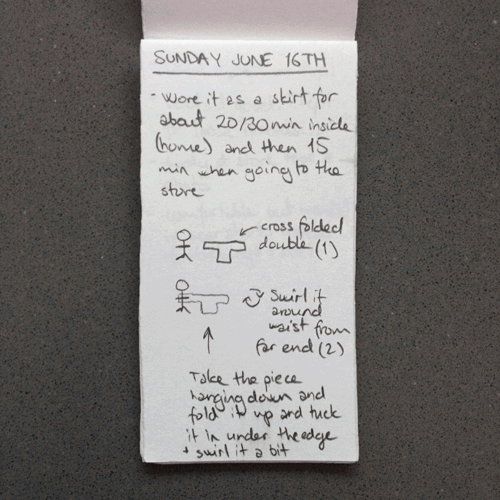 SUNDAY JUNE 16TH
- Wore it as a skirt for
about 20/30 min inside
(home) and then 15
min when going to the
store
cross folded
double (1)
Swirl it
around
waist from
far end (2)
Take the piece
hanging down and
fold it up and tuck
it in under the edge
+ swirl it a bit